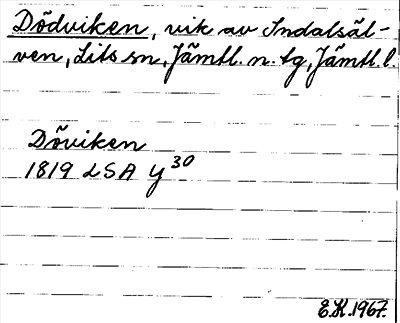 Dödviken, vik av Indalsäl-
ven, Lits sn, Jämtl. n. tg, Jämtl. l.
Döviken
1819 LSA Y 30
E.K. 1967.